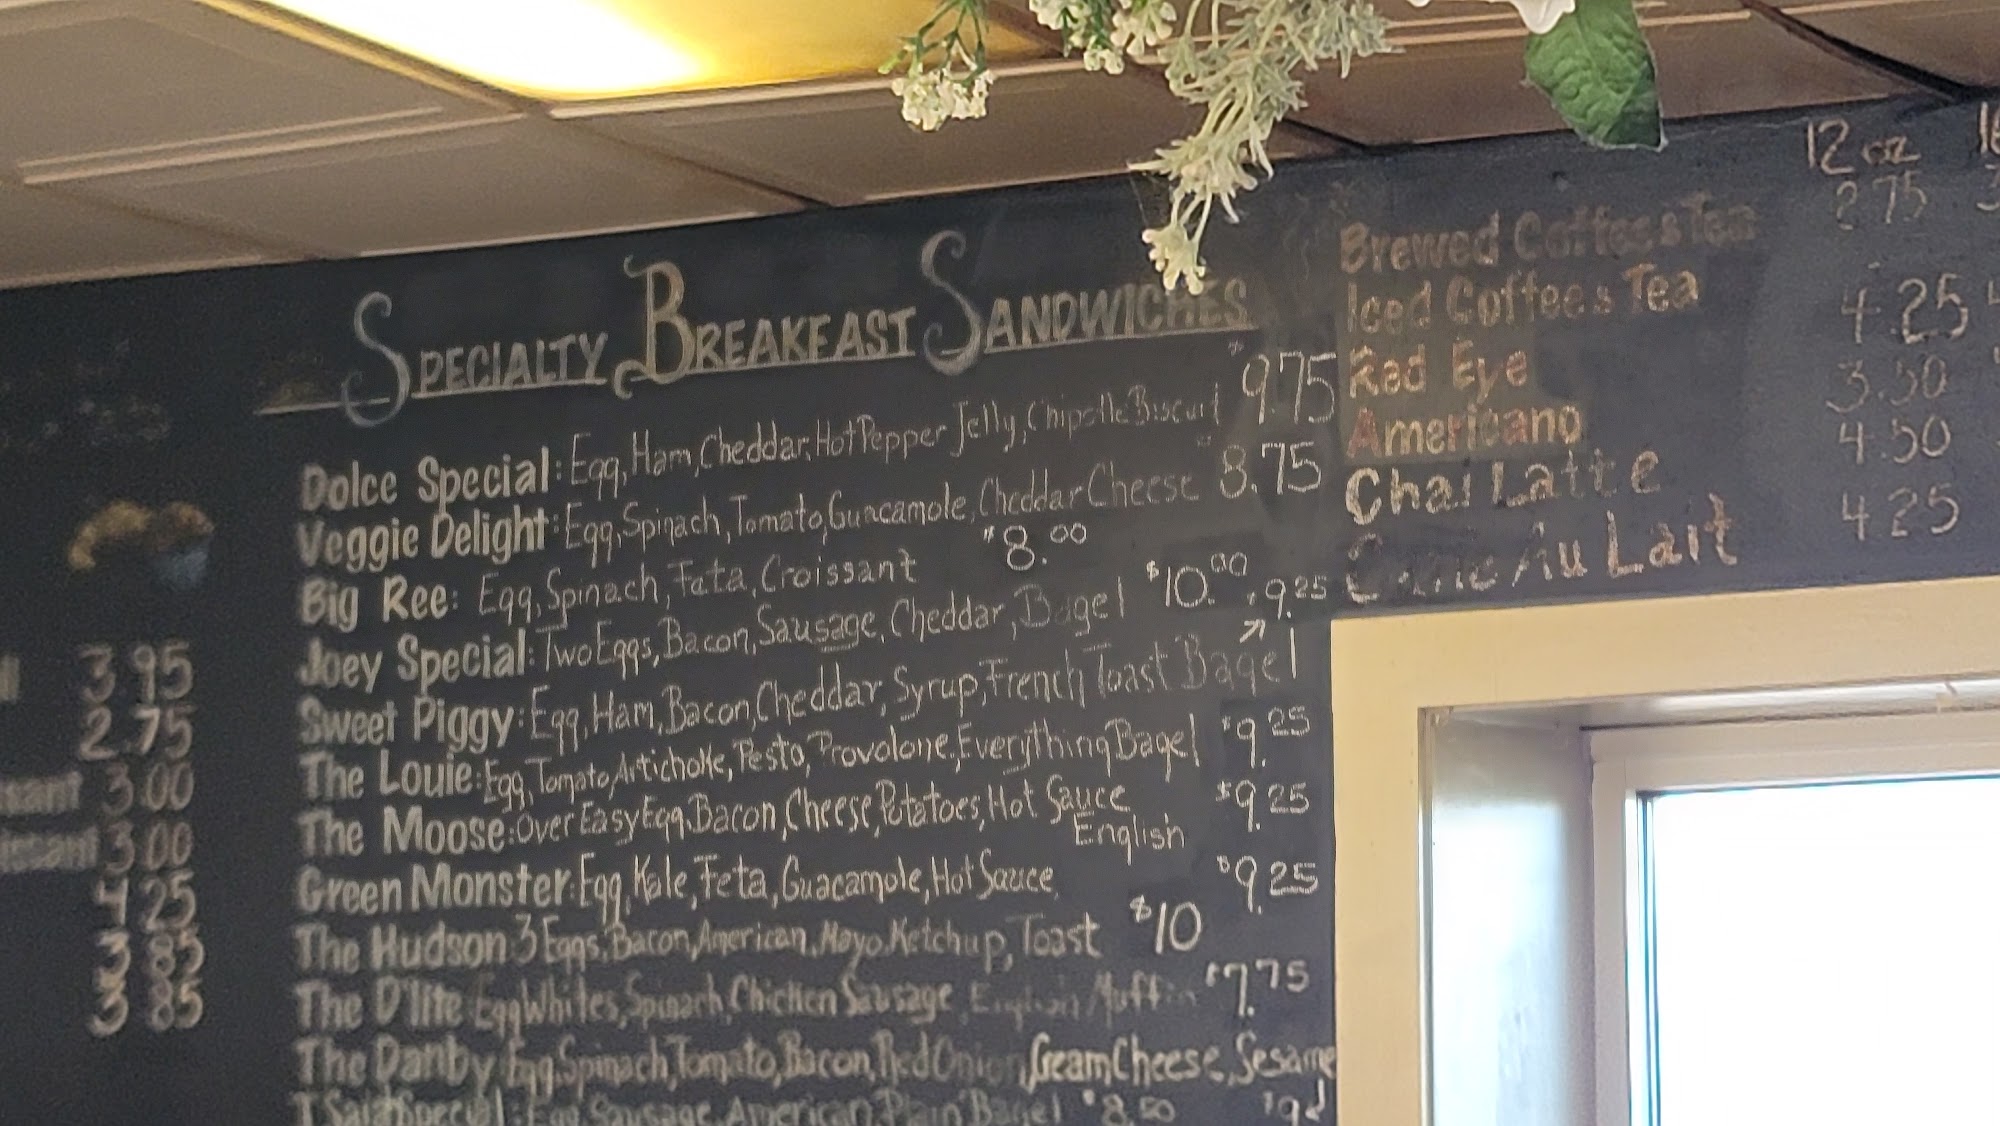 3.95
2.75
3.00
3.00
4.25
3.85
3.85
SPECIALTY BREAKFAST SANDWICHES
Dolce Special: Egg, Ham, Cheddar, Hot Pepper Jelly, Chipotle Biscuit 9.75
Veggie Delight: Egg, Spinach, Tomato, Guacamole, Cheddar Cheese 8.75
Big Ree: Egg, Spinach, Feta, Croissant $8.00
Joey Special: Two Eggs, Bacon, Sausage, Cheddar, Bagel $10.00
Sweet Piggy: Egg, Ham, Bacon, Cheddar, Syrup, French Toast Bagel 9.25
The Louie: Egg, Tomato, Artichoke, Pesto, Provolone, Everything Bagel $9.25
The Moose: Over Easy Egg, Bacon, Cheese, Potatoes, Hot Sauce English $9.25
Green Monster: Egg, Kale, Feta, Guacamole, Hot Sauce $9.25
The Hudson: 3 Eggs, Bacon, American, Mayo, Ketchup, Toast $10
The D'lite Egg Whites, Spinach, Chicken Sausage, English Muffin $7.75
The Danby Egg, Spinach, Tomato, Bacon, Red Onion, Cream Cheese, Sesame
Special: Egg, Sausage, American, Plain Bagel 8.50
12 oz
Brewed Coffee & Tea 2.75
Iced Coffee & Tea
Red Eye 4.25
Americano 3.50
Chai Latte 4.50
Au Lait 4.25